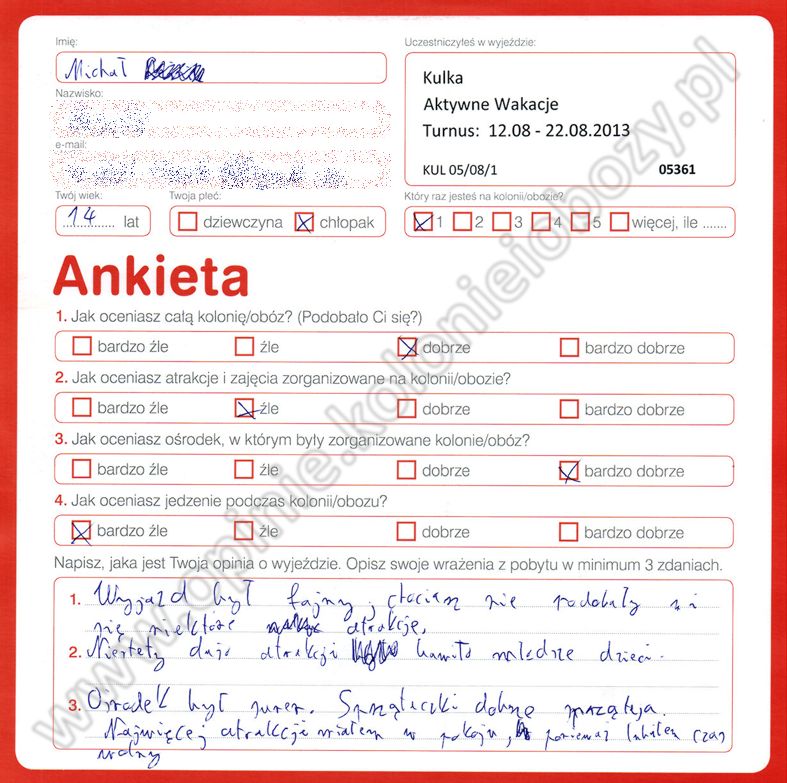 Imię:
Michał
Uczestniczyłeś w wyjeździe:
Kulka
Aktywne Wakacje
Turnus: 12.08 - 22.08.2013
KUL 05/08/1 05361
Nazwisko:
e-mail:
Twój wiek:
14 lat
Twoja płeć:
dziewczyna chłopak
Który raz jesteś na kolonii/obozie?
1 2 3 4 5 więcej, ile .......
Ankieta
1. Jak oceniasz całą kolonię/obóz? (Podobało Ci się?)
bardzo źle źle dobrze bardzo dobrze
2. Jak oceniasz atrakcje i zajęcia zorganizowane na kolonii/obozie?
bardzo źle źle dobrze bardzo dobrze
3. Jak oceniasz ośrodek, w którym były zorganizowane kolonie/obóz?
bardzo źle źle dobrze bardzo dobrze
4. Jak oceniasz jedzenie podczas kolonii/obozu?
bardzo źle źle dobrze bardzo dobrze
Napisz, jaka jest Twoja opinia o wyjeździe. Opisz swoje wrażenia z pobytu w minimum 3 zdaniach.
1. Wyjazd był fajny, chociasz nie podobały mi
się niektóre atrakcje.
2. Niestety dużo atrakcji bawiło młodsze dzieci.
3. Ośrodek był super. Sprzątaczki dobrze sprzątają.
Najwięcej atrakcji miałem w pokoju, ponieważ lubiłem czas
wolny
www.opinie.kolonieiobozy.pl